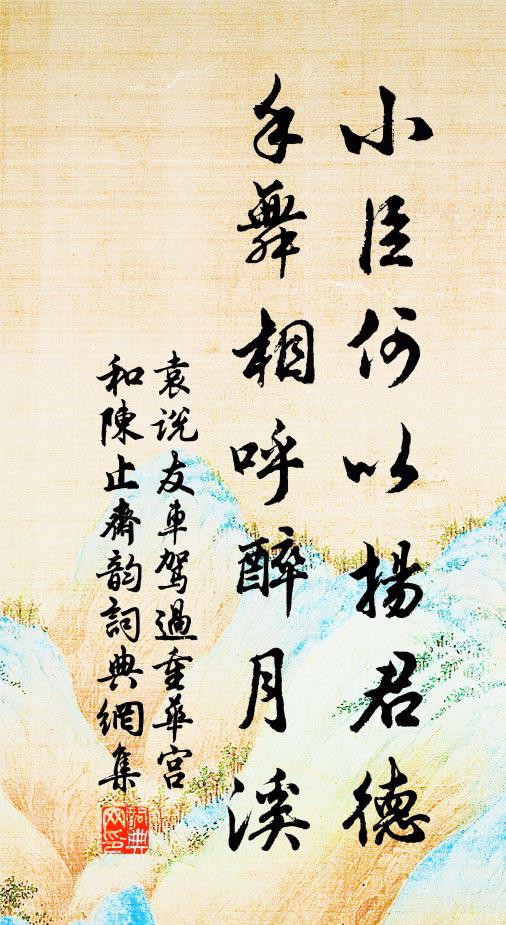 小臣何以揚君德
手舞相呼醉月溪
袁說友車駕過重華宮
和陳止齋韵詞典網集